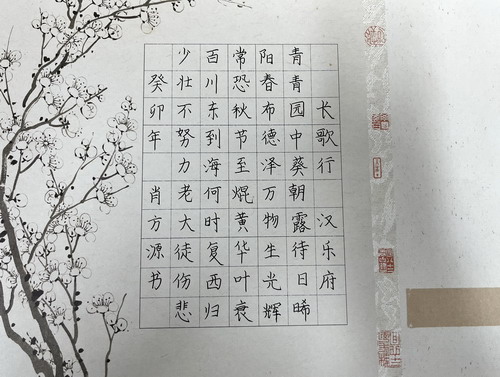 长歌行 汉乐府
青青园中葵朝露待日晞
阳春布德泽万物生光辉
常恐秋节至焜黄华叶衰
百川东到海何时复西归
少壮不努力老大徒伤悲
癸卯年 肖方源书